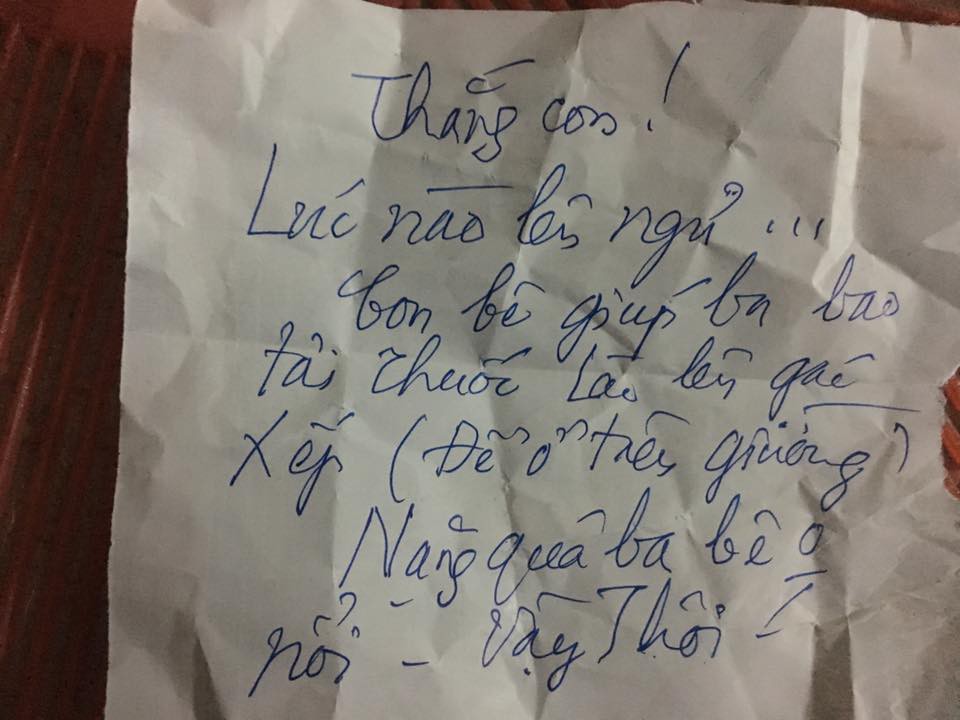 Thắng con!
Lúc nào lên ngủ ...
Con bê giúp ba bao
tải thuốc Lào lên gác
xếp (Để ở trên giường)
Nặng quá ba bê o
nổi - Vậy Thôi!